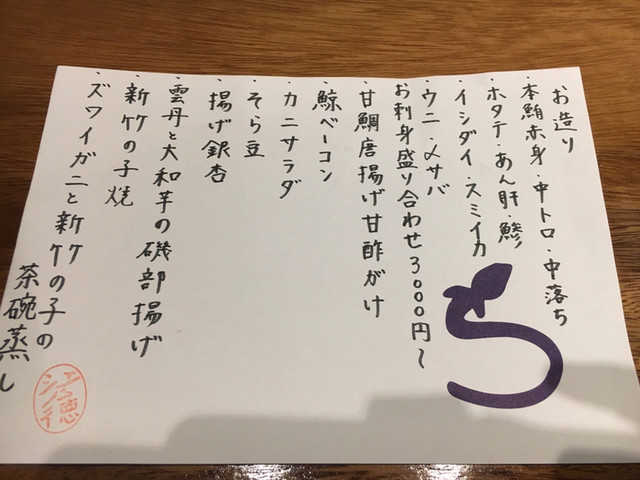 お造り
・本鮪赤身・中トロ・中落ち
・ホタテ・あん肝・鯵
・イシダイ・スミイカ
・ウニ・〆サバ
お刺身盛り合わせ3000円〜
・甘鯛唐揚げ甘酢がけ
・鯨ベーコン
・カニサラダ
・そら豆
・揚げ銀杏
・雲丹と大和芋の磯部揚げ
・新竹の子焼
・ズワイガニと新竹の子の
茶碗蒸し